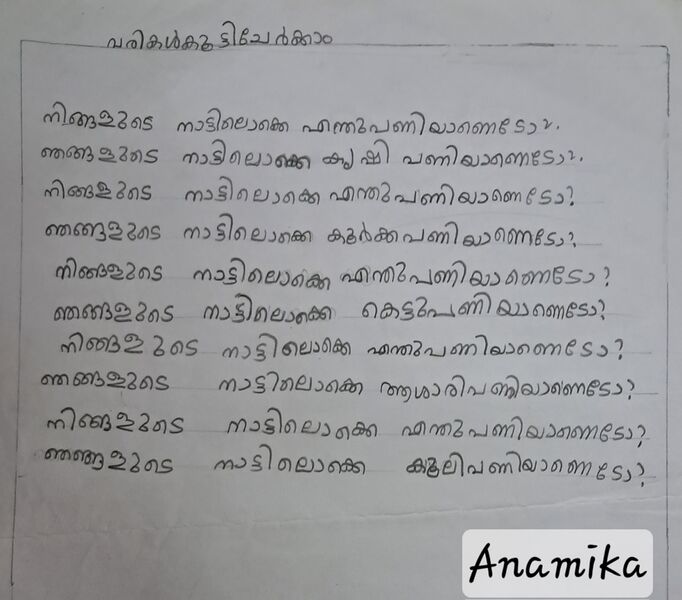 വരികൾകൂട്ടിചേർക്കാം
നിങ്ങളുടെ നാട്ടിലൊക്കെ എന്തുപണിയാണെടോ?.
ഞങ്ങളുടെ നാട്ടിലൊക്കെ കൃഷി പണിയാണെടോ?.
നിങ്ങളുടെ നാട്ടിലൊക്കെ എന്തുപണിയാണെടോ?
ഞങ്ങളുടെ നാട്ടിലൊക്കെ കൂർക്കപണിയാണെടോ?
നിങ്ങളുടെ നാട്ടിലൊക്കെ എന്തുപണിയാണെടോ?
ഞങ്ങളുടെ നാട്ടിലൊക്കെ കെട്ടുപണിയാണെടോ?
നിങ്ങളുടെ നാട്ടിലൊക്കെ എന്തുപണിയാണെടോ?
ഞങ്ങളുടെ നാട്ടിലൊക്കെ ആശാരിപണിയാണെടോ?
നിങ്ങളുടെ നാട്ടിലൊക്കെ എന്തുപണിയാണെടോ?
ഞങ്ങളുടെ നാട്ടിലൊക്കെ കൂലിപണിയാണെടോ?
Anamika